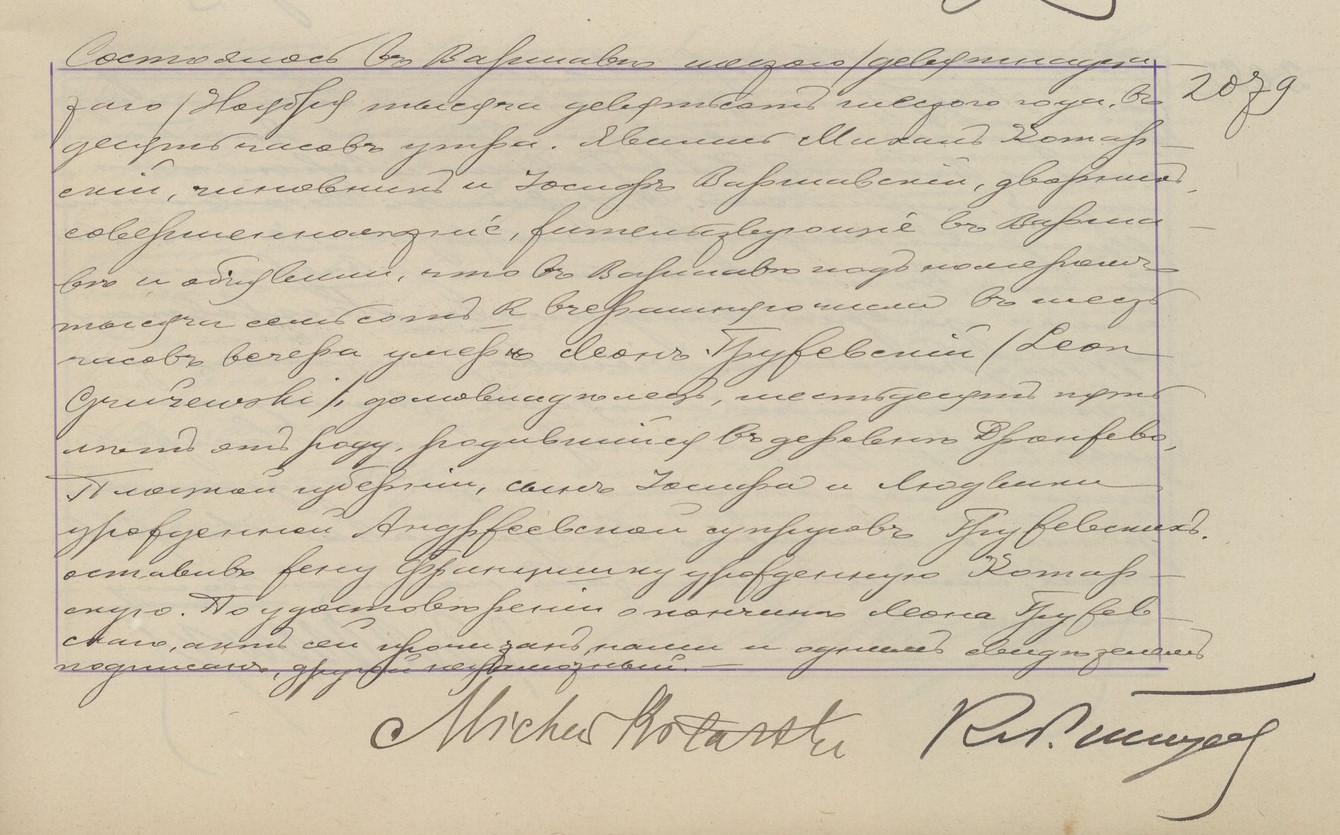 Состоялось въ Варшавѣ шестого /девятнадца
таго/ Ноября тысяча девятьсотъ шестого года, въ
десять часовъ утра. Явились Михаилъ Котар-
скій, чиновникъ и Іосифъ Варшавскій, дворникъ,
совершеннолѣтніе, жительствующіе въ Варша-
вѣ и объявили, что въ Варшавѣ подъ номеромъ
тысяча семьсотъ R вчерашняго числа въ шесть
часовъ вечера умеръ Леонъ Гружевскій /Leon
Grużewski/, домовладѣлецъ, шестьдесятъ пять
лѣтъ отъ роду, родившійся въ деревнѣ Дронжево,
Плоцкой губерніи, сынъ Іосифа и Людвики
урожденной Андржеевской супруговъ Гружевскихъ.
оставивъ жену Францишку урожденную Котар-
скую. По удостовѣреніи о кончинѣ Леона Гружев-
скаго, актъ сей прочитанъ, нами и однимъ свидѣтелемъ
подписанъ, другой неграмотный. —
2079
Michał Kotarski